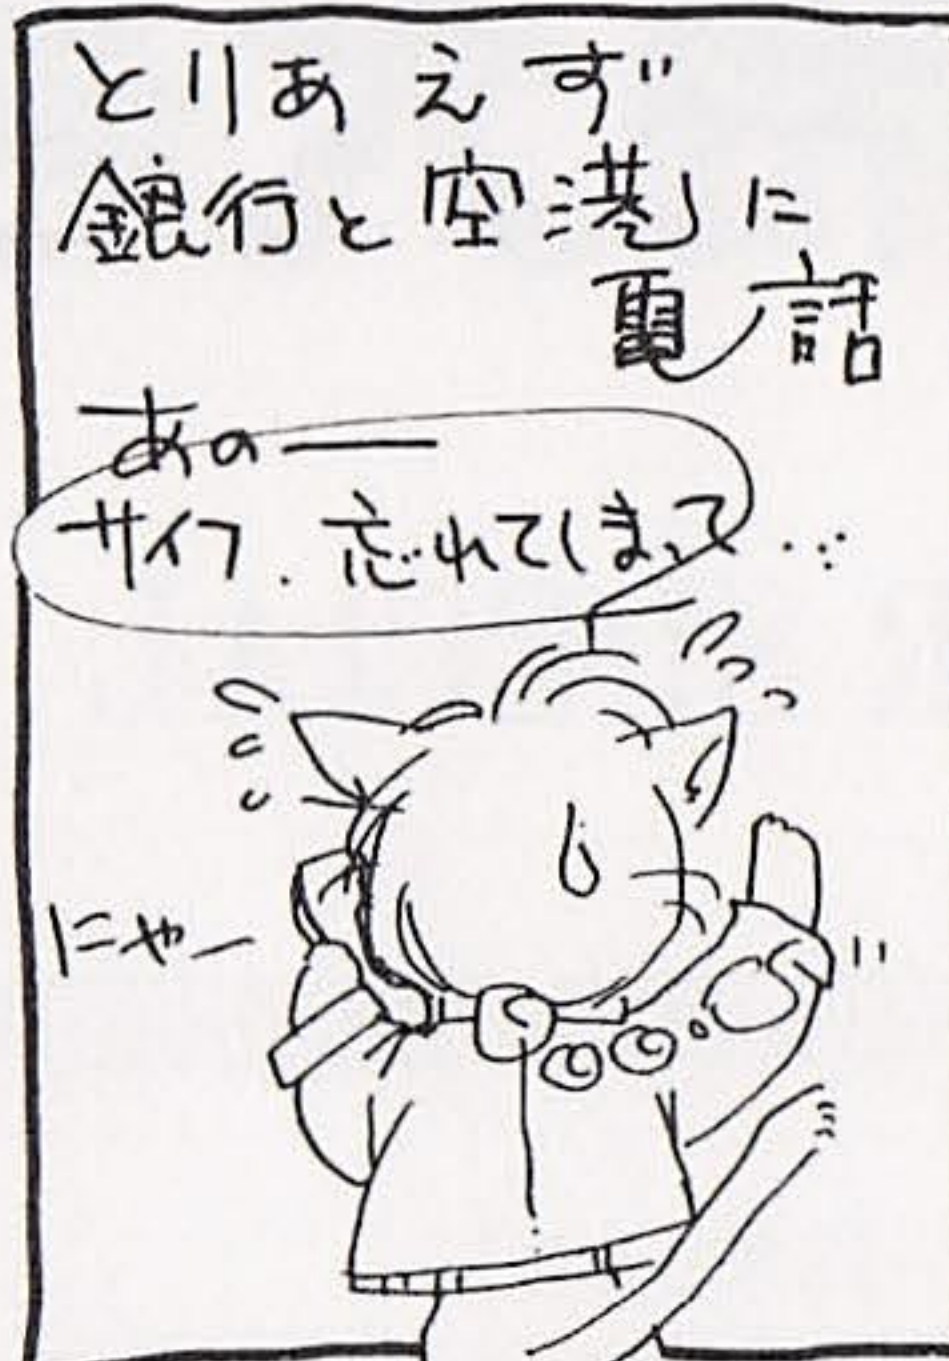 とりあえず
銀行と空港に
電話
あのー
サイフ、忘れてしまって…
にゃー